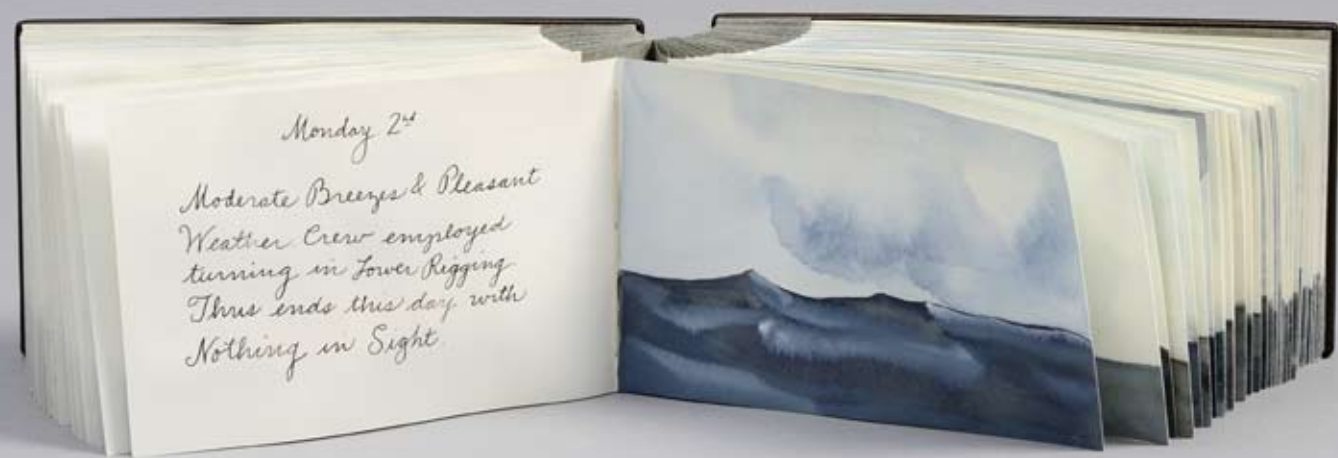 Monday 2nd
Moderate Breezes & Pleasant
Weather Crew employed
turning in Lower Rigging
Thus ends this day with
Nothing in Sight